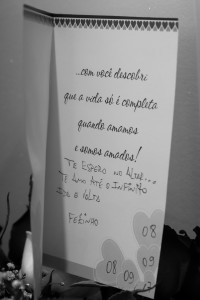 ...com você descobri
que a vida só é completa
quando amamos
e somos amados!
TE ESPERO NO ALTAR...
TE AMO ATÉ O INFINITO
IDA E VOLTA
FELINHO
08
09
08 09 12